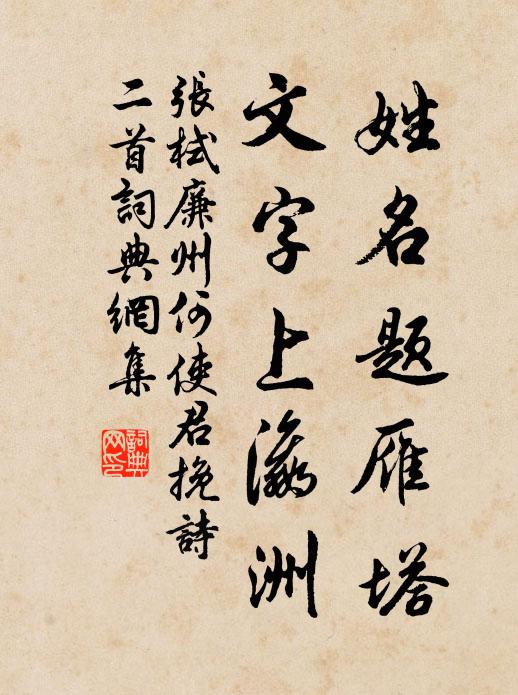 姓名题雁塔
文字上瀛洲
張栻廉州何使君挽詩
二首詞典網集
詞典網印